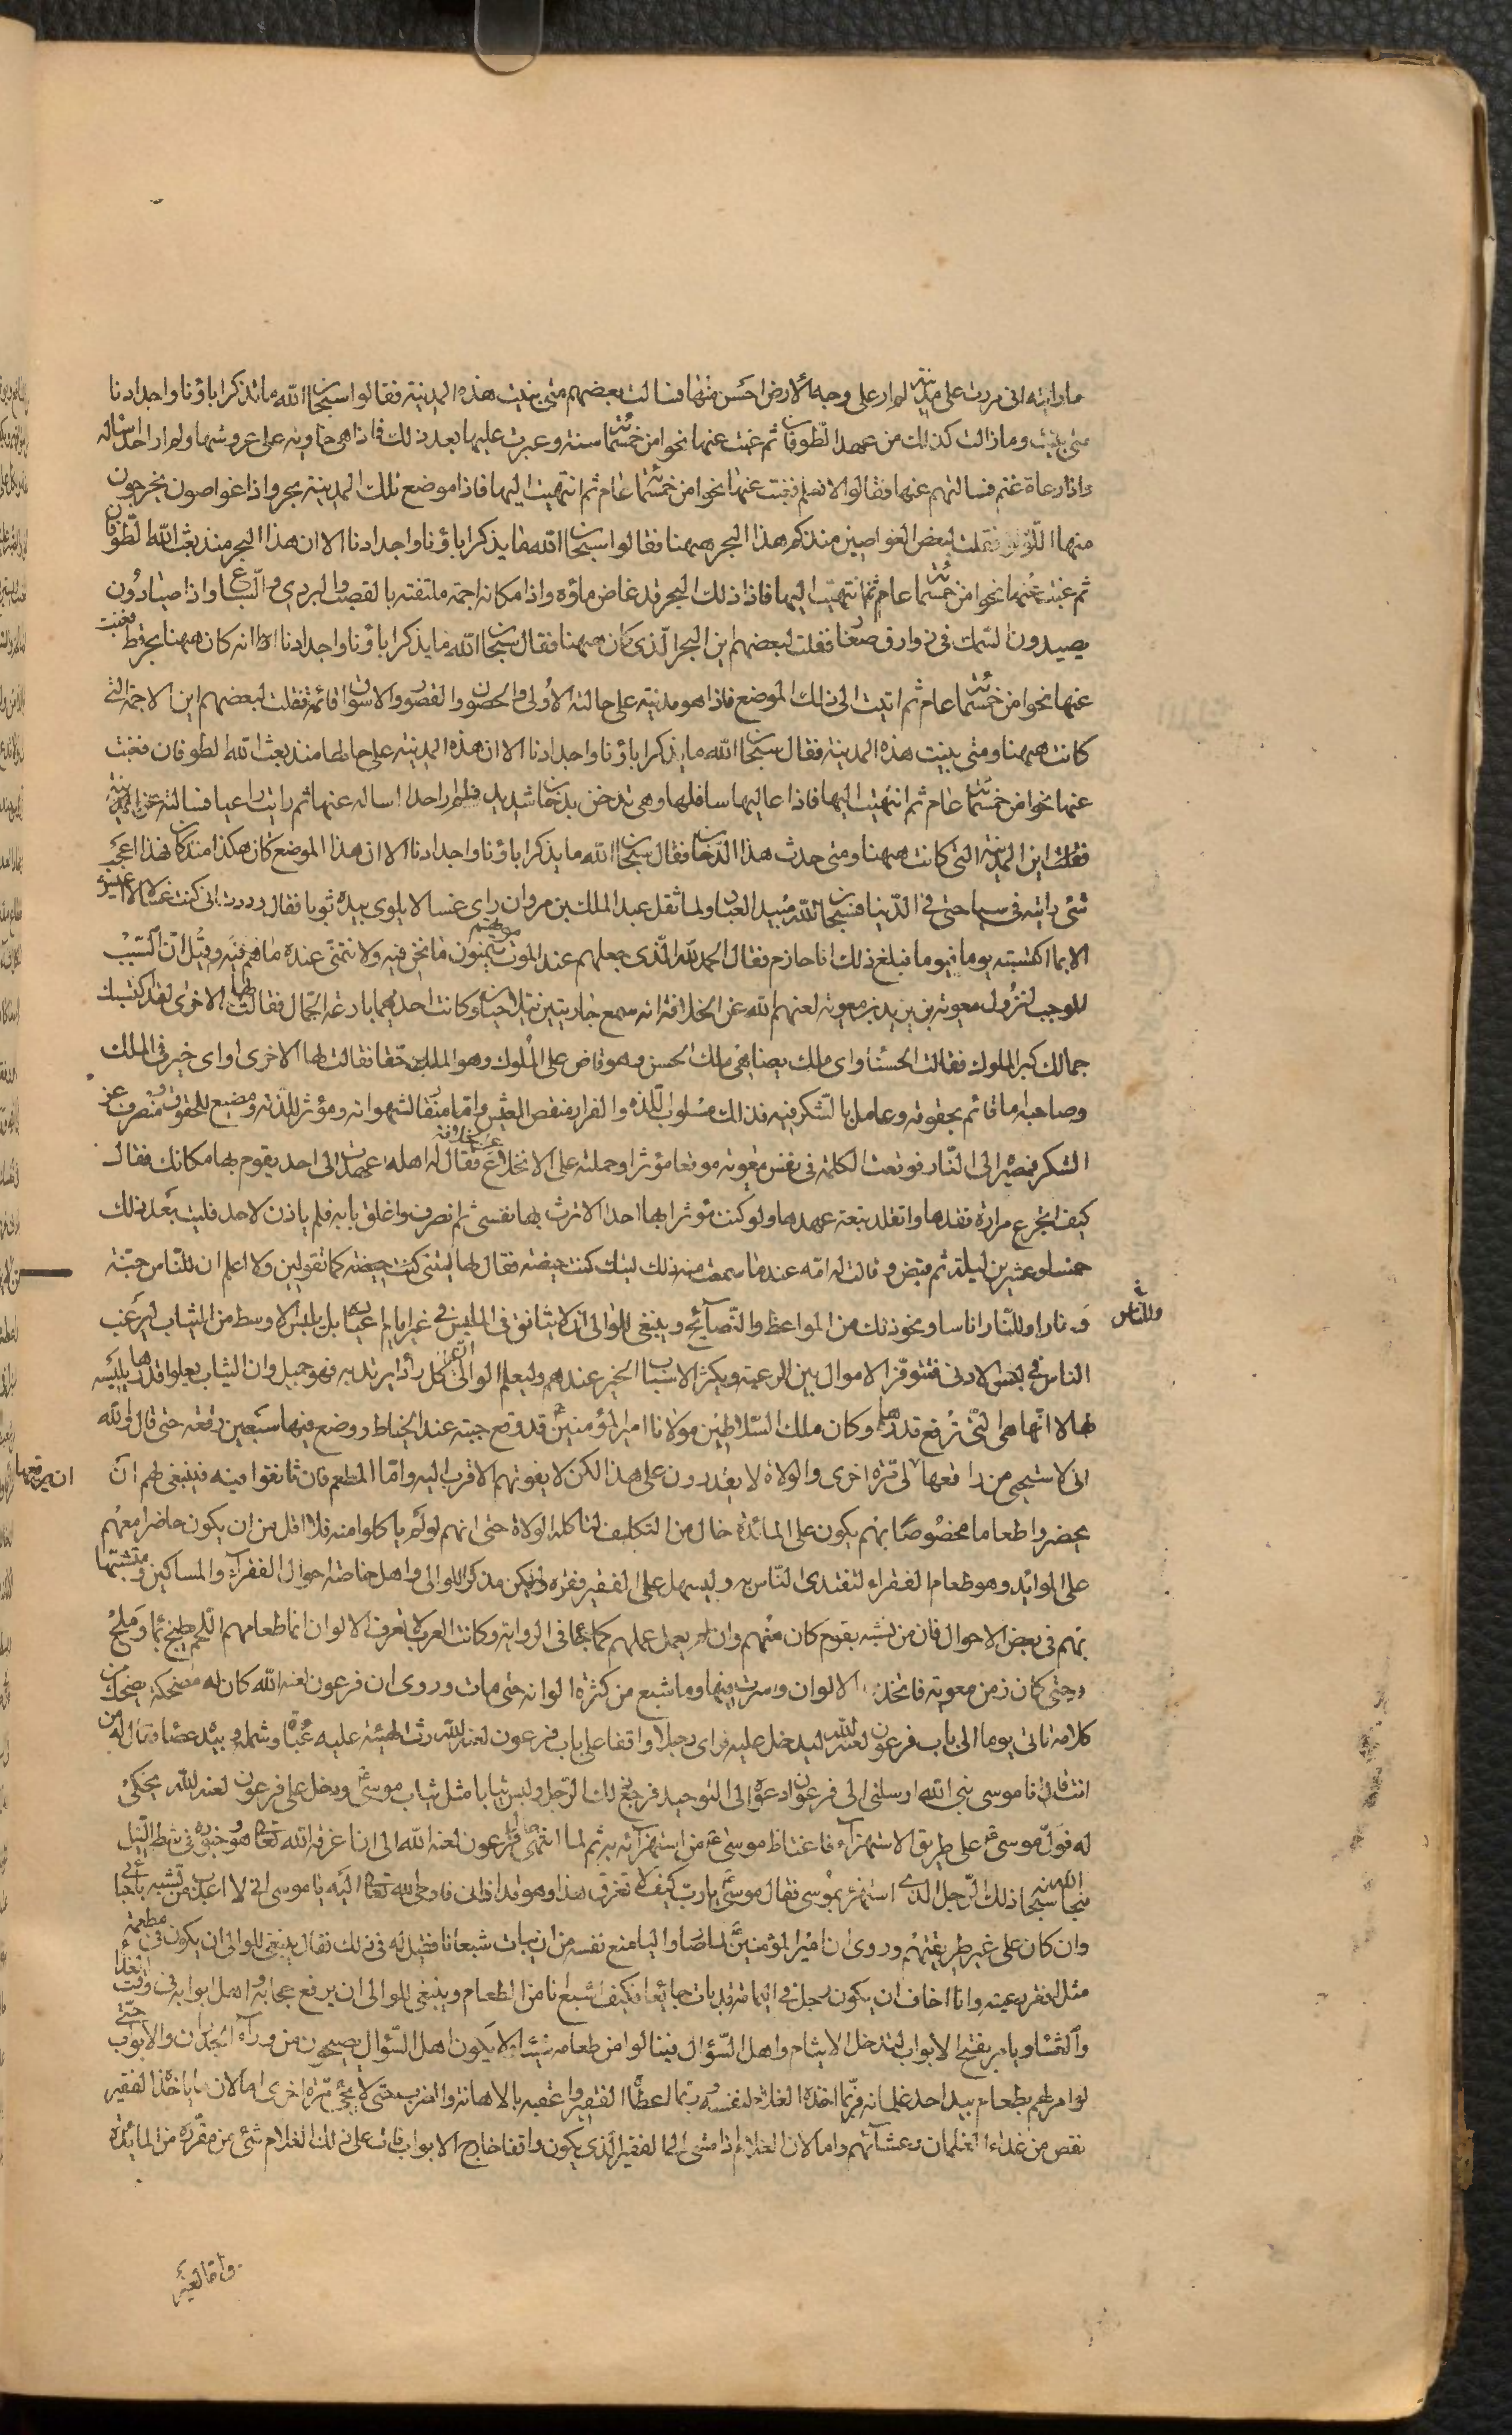 ما رايته اني مررت على مدينة لم ار على وجه الارض احسن منها فسالت بعضهم متى بنيت هذه المدينة فقالوا سبحان الله ما يذكر اباؤنا واجدادنا
متى بنيت وما زالت كذلك من عهد الطوفان ثم غبت عنها نحوا من خمسمائة سنة وعبرت عليها بعد ذلك فاذا هي خاوية على عروشها ولم ار احدا اساله
واذا رعاة غنم فسالتهم عنها فقالوا لا نعلم فغبت عنها نحوا من خمسمائة عام ثم انتهيت اليها فاذا موضع تلك المدينة بحر واذا غواصون يخرجون
منها اللؤلؤ فقلت لبعض الغواصين منذ كم هذا البحر ههنا فقالوا سبحان الله ما يذكر اباؤنا واجدادنا الا ان هذا البحر منذ بعث الله الطوفان
ثم غبت عنها نحوا من خمسمائة عام ثم انتهيت اليها فاذا ذلك البحر قد غاض ماؤه واذا مكانه اجمة ملتفة بالقصب والبردي والسباع واذا صيادون
يصيدون السمك في زوارق صغار فقلت لبعضهم اين البحر الذي كان ههنا فقال سبحان الله ما يذكر اباؤنا واجدادنا انه كان ههنا بحر قط فغبت
عنها نحوا من خمسمائة عام ثم اتيت الى ذلك الموضع فاذا هو مدينة على حالته الاولى والحصون والقصور والاسواق قائمة فقلت لبعضهم اين الاجمة التي
كانت ههنا ومتى بنيت هذه المدينة فقال سبحان الله ما يذكر اباؤنا واجدادنا الا ان هذه المدينة على حالها منذ بعث الله الطوفان فغبت
عنها نحوا من خمسمائة عام ثم انتهيت اليها فاذا عاليها سافلها وهي تدخن بدخان شديد فلم ار احدا اساله عنها ثم رايت راعيا فسالته عن المدينة
فقلت اين المدينة التي كانت ههنا ومتى حدث هذا الدخان فقال سبحان الله ما يذكر اباؤنا واجدادنا الا ان هذا الموضع كان هكذا منذ كان فهذا اعجب
شئ رايته في سياحتي في الدنيا فسبحان الله مبيد العباد ولما ثقل عبد الملك بن مروان راى غسالا يلوى بيده ثوبا فقال وددت اني كنت غسالا لا اعيش
الا بما اكتسبته يوما فيوما فبلغ ذلك ابا حازم فقال الحمد لله الذي جعلهم عند الموت يتمنون ما نحن فيه ولا نتمنى عنده ما هم فيه وقيل ان السبب
الموجب لنزول معوية بن يزيد بن معوية لعنهم الله عن الخلافة انه سمع جاريتين تتباحثان وكانت احديهما بارعة الجمال فقالت لها الاخرى لقد اكسبك
جمالك كبر الملوك فقالت الحسناء واي ملك يضاهي ملك الحسن وهو قاض على الملوك وهو الملك حقا فقالت لها الاخرى واي خير في الملك
وصاحبه اما قائم بحقوقه وعامل بالشكر فيه فذاك مسلوب اللذة والقرار منغص العيش واما منقاد لشهواته ومؤثر للذته ومضيع للحقوق ومضرب عن
الشكر فمصيره الى النار فوقعت الكلمة في نفس معوية موقعا مؤثرا وحملته على الانخلاع فقال له اهله اعهد الى احد يقوم بها مكانك فقال
كيف اتجرع مرارة فقدها واتقلد تبعة عهدها ولو كنت مؤثرا بها احدا لاثرت بها نفسي ثم انصرف واغلق بابه فلم ياذن لاحد فلبث بعد ذلك
خمسا وعشرين ليلة ثم قبض وقالت له امه عندما سمعت منه ذلك ليتك كنت حيضة فقال لها ليتني كنت حيضة كما تقولين ولا اعلم ان للناس جنة
ونارا وللنار اناسا ونحو ذلك من المواعظ والنصايح وينبغي للوالي ان لا يتانق في الملبس في غير ايام بل يلبس الاوسط من الثياب ليرغب
وللناس
الناس في لبس الادنى فتتوفر الاموال بين الرعية ويكثر الاسباب الخير عندهم وليعلم الوالي ان كل رداء يرتديه فهو جميل وان الثياب يعلوا قدرها بلبسه
لها لا انها هي التي ترفع قدره وكان ملك السلاطين مولانا امير المؤمنين قد رقع جبته عند الخياط ووضع فيها سبعين رقعة حتى قال والله
اني لاستحيي من راقعها الى مرة اخرى والولاة لا يقدرون على هذا لكن لا يفوتهم الاقرب اليه واما المطعم فان تانقوا فيه فينبغي لهم ان
ان يرقعها
يحضروا طعاما مخصوصا بهم يكون على المائدة خال من التكليف لتاكله الولاة حتى انهم لو لم ياكلوا منه فلا اقل من ان يكون حاضرا معهم
على الموايد وهو طعام الفقراء لتقتدى الناس به وليسهل على الفقير فقره وليكن مذكرا للوالي واهل خاصته احوال الفقراء والمساكين ومتشبها
بهم في بعض الاحوال فان من تشبه بقوم كان منهم وان لم يعمل عملهم كما جاء في الرواية وكانت العرب لا تعرف الالوان انما طعامهم اللحم يطبخ بماء وملح
حتى كان زمن معوية فاتخذ الالوان وسرف فيها وما شبع من كثرة الوانه حتى مات وروى ان فرعون لعنه الله كان له مضحك يضحك من
كلامه فاتى يوما الى باب فرعون لعنه الله ليدخل عليه فراى رجلا واقفا على باب فرعون لعنه الله رث الهيئة عليه عباءة وشملة وبيده عصا فقال له من
انت قال انا موسى نبي الله ارسلني الى فرعون ادعوه الى التوحيد فرجع ذلك الرجل ولبس ثيابا مثل ثياب موسى ودخل على فرعون لعنه الله يحكي
له قول موسى على طريق الاستهزاء فاغتاظ موسى من استهزائه به ثم لما انتهى امر فرعون لعنه الله الى ان اغرقه الله تعالى هو وجنوده في شط النيل
نجا الله سبحانه ذلك الرجل الذي استهزء بموسى فقال موسى يا رب كيف لا تغرق هذا وهو قد اذاني فاوحى الله تعالى اليه يا موسى اني لا اعذب من تشبه باحبائي
وان كان على غير طريقتهم وروى ان امير المؤمنين لما صار واليا منع نفسه من ان يبات شبعانا فقيل له في ذلك فقال ينبغي للوالي ان يكون في مطعمه
مثل افقر رعيته وانا اخاف ان يكون رجل في اليمامة قد بات جائعا فكيف اشبع انا من الطعام وينبغي للوالي ان يرفع حجابه واهل ابوابه في وقت الغداء
والعشاء ويامر بفتح الابواب لتدخل الايتام واهل السؤال فينالوا من طعامه شيئا ولا يكون اهل السؤال يصيحون من وراء الجدران والابواب حتى
لو امر لهم بطعام بيد احد غلمانه فربما اخذه الغلام لنفسه وربما لعطاء الفقير واعقبه بالاهانة والضرب حتى لا يجئ مرة اخرى اما لان ما ياخذ الفقير
نقص من غذاء الغلمان وعشائهم واما لان الغلام اذا مشى الى الفقير الذي يكون واقفا خارج الابواب فات على ذلك الغلام شئ من مقرره من المائدة
واما لغير